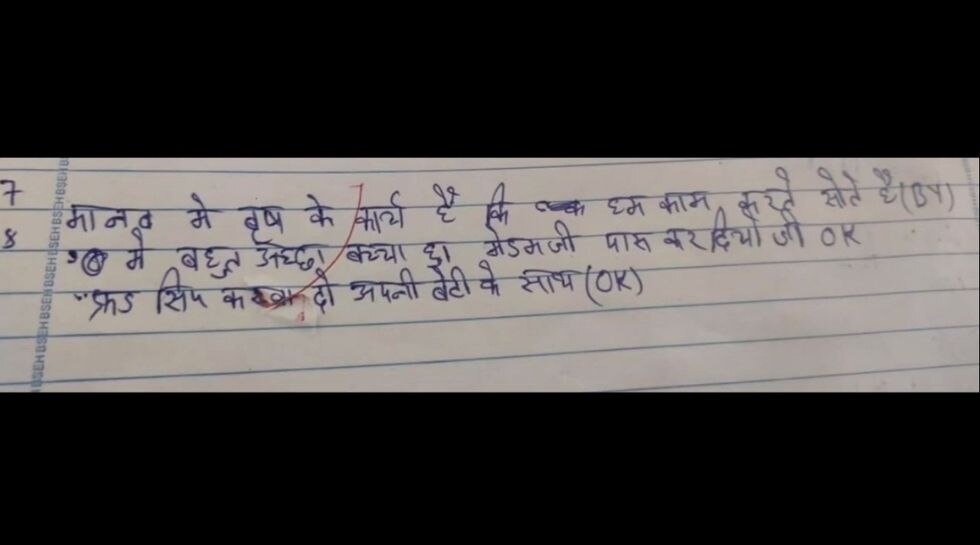 7 मानव मे वृष के कार्य है कि हम काम करते सोते है (BY)
8 मे बहुत अच्छा बच्चा हु। मेडमजी पास कर दियो जी OK
"फ्रड सिप करवा दो अपनी बेटी के साथ (OK)
BSEH BSEH BSEH BSEH BSEH BSEH